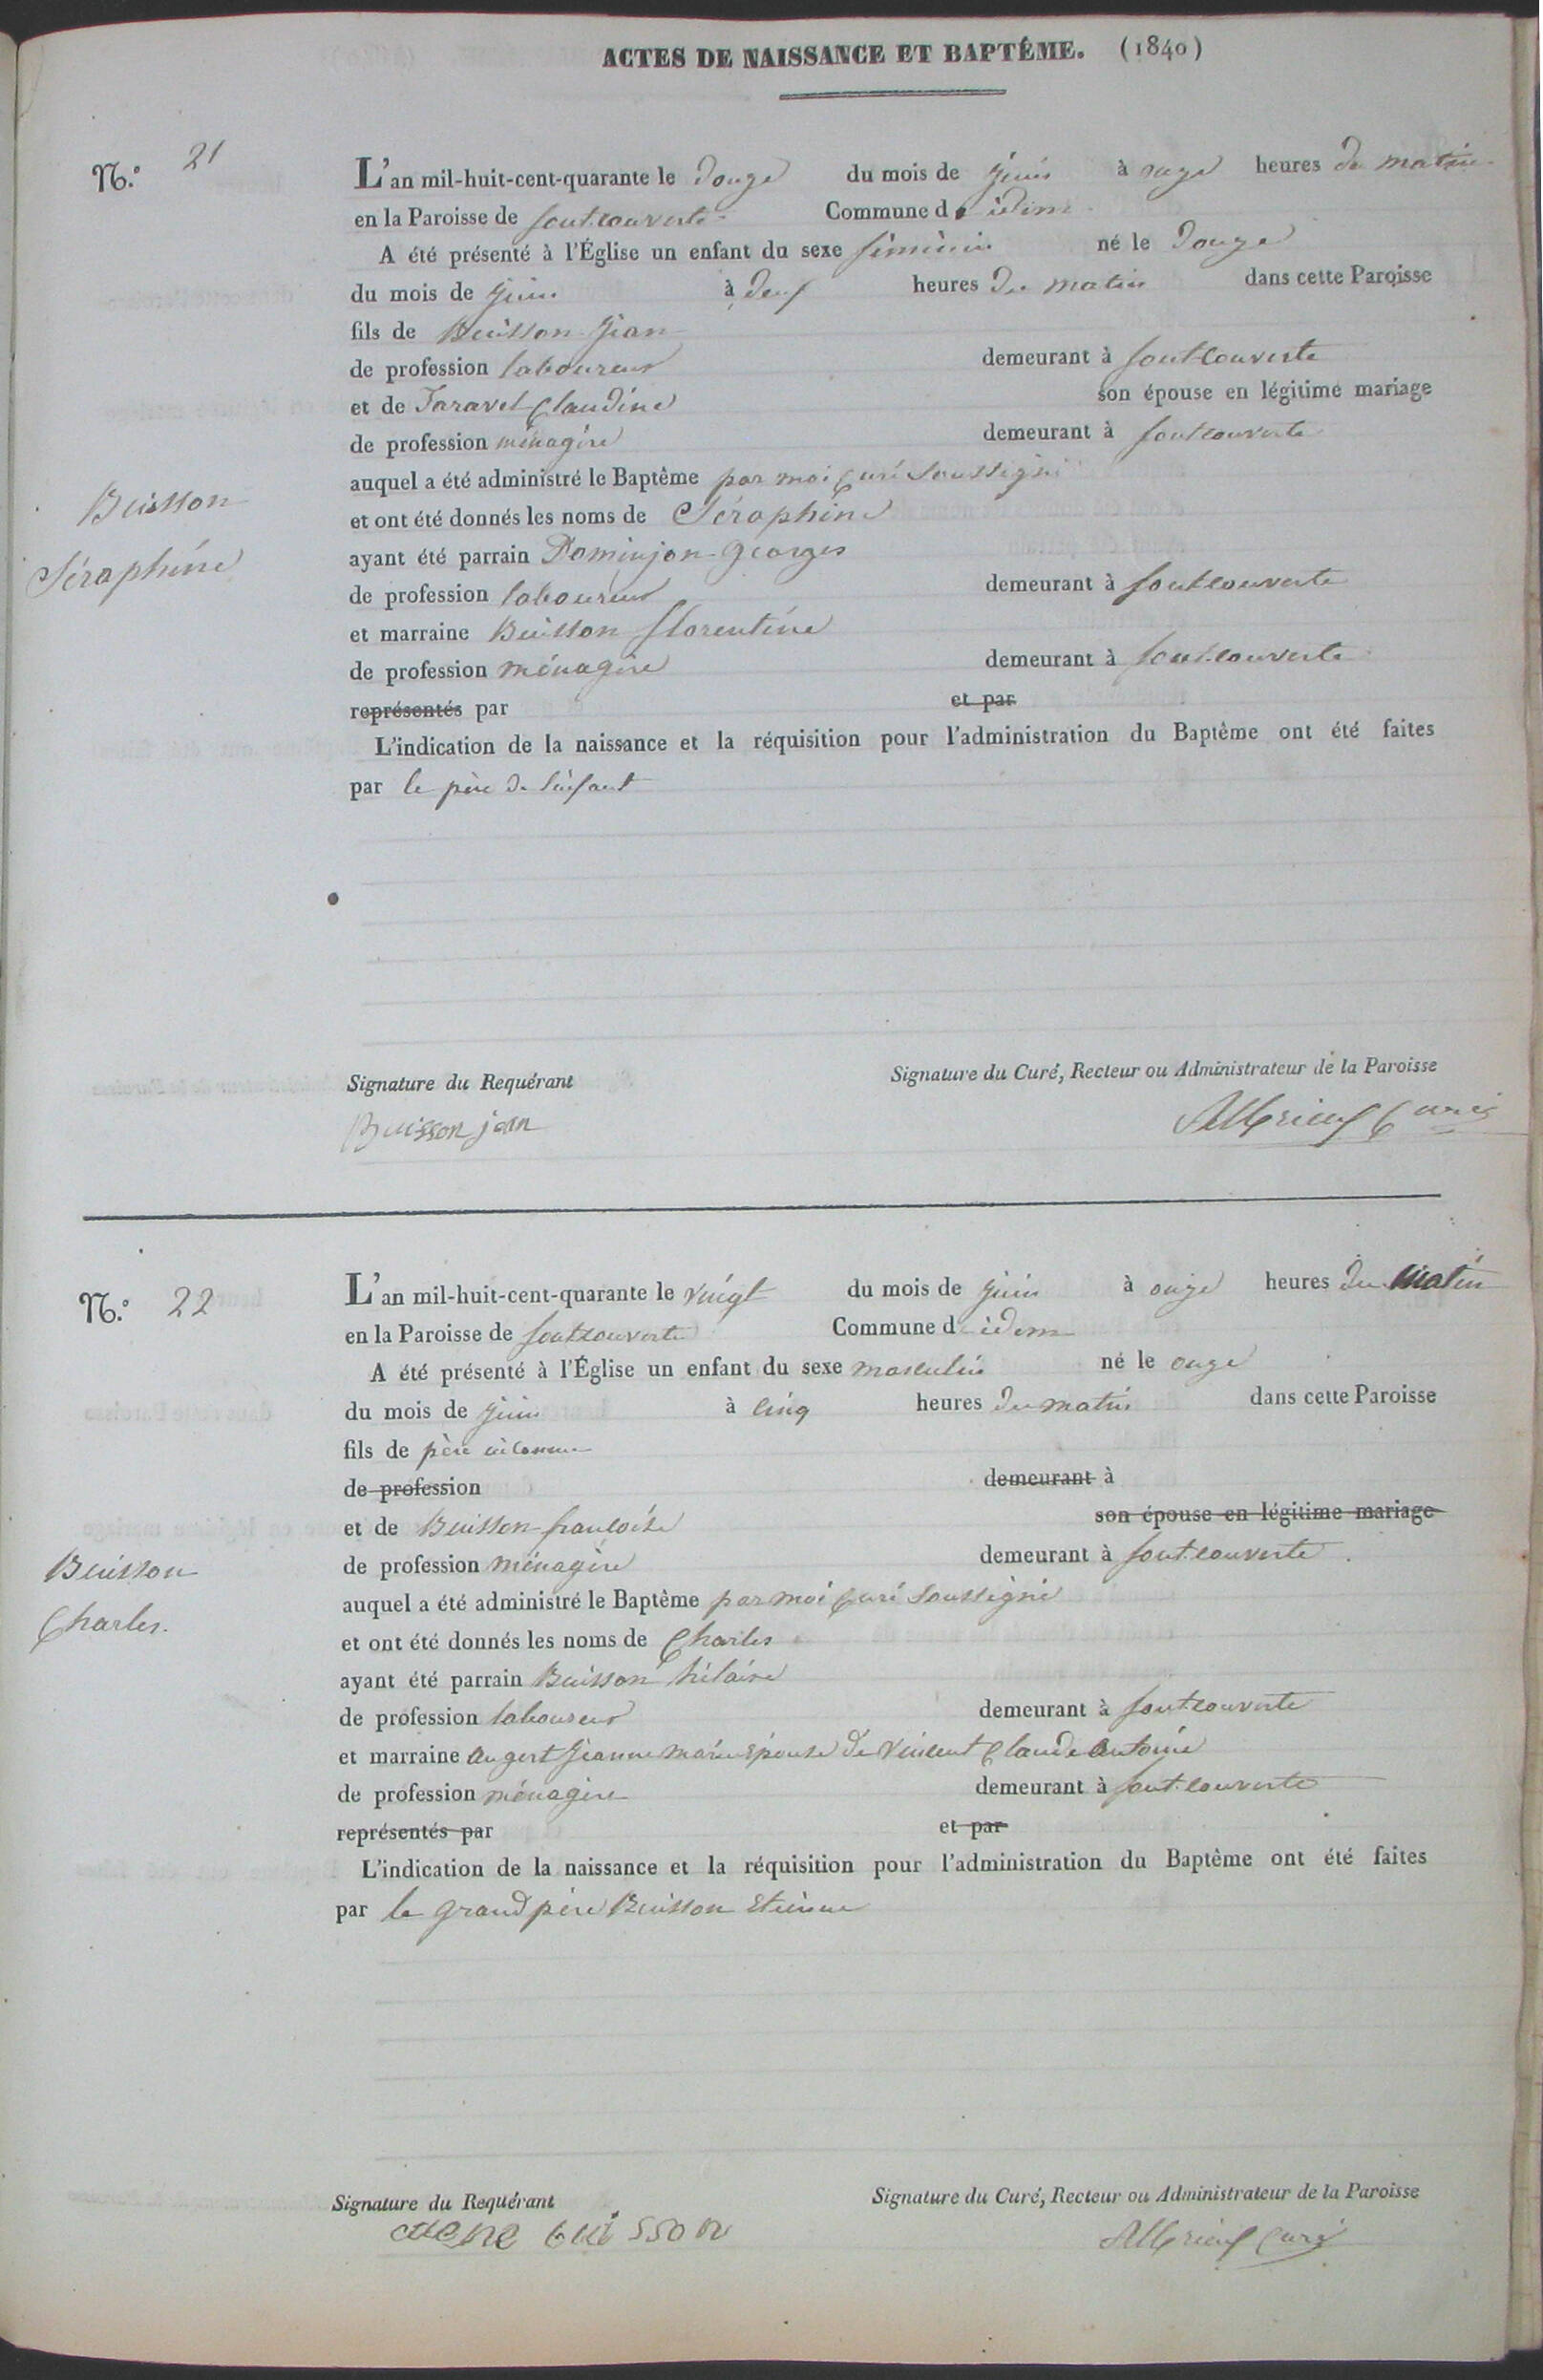 ACTES DE NAISSANCE ET BAPTÊME. (1840)
N.º 21
L'an mil-huit-cent-quarante le douze du mois de juin à onze heures du matin
en la Paroisse de fontcouverte Commune d idem
A été présenté à l'Église un enfant du sexe féminin né le douze
du mois de juin à deux heures du matin dans cette Paroisse
fils de Buisson Jean
de profession laboureur demeurant à fontcouverte
et de Taravel Claudine son épouse en légitime mariage
de profession ménagère demeurant à fontcouverte
auquel a été administré le Baptême par moi Curé soussigné
Buisson
et ont été donnés les noms de Séraphine
Séraphine
ayant été parrain Dominjon Georges
de profession laboureur demeurant à fontcouverte
et marraine Buisson florentine
de profession ménagère demeurant à fontcouverte
représentés par et par
L'indication de la naissance et la réquisition pour l'administration du Baptême ont été faites
par le père de l'enfant
Signature du Requérant Signature du Curé, Recteur ou Administrateur de la Paroisse
Buisson jean Curé
N.º 22
L'an mil-huit-cent-quarante le vingt du mois de juin à onze heures du matin
en la Paroisse de fontcouverte Commune d idem
A été présenté à l'Église un enfant du sexe masculin né le onze
du mois de juin à cinq heures du matin dans cette Paroisse
fils de père inconnu
de profession demeurant à
et de Buisson françoise son épouse en légitime mariage
de profession ménagère demeurant à fontcouverte
Buisson
auquel a été administré le Baptême par moi Curé soussigné
Charles.
et ont été donnés les noms de Charles
ayant été parrain Buisson hilaire
de profession laboureur demeurant à fontcouverte
et marraine Augert Jeanne marie épouse de Vincent Claude Antoine
de profession ménagère demeurant à fontcouverte
représentés par et par
L'indication de la naissance et la réquisition pour l'administration du Baptême ont été faites
par le grand père Buisson Etienne
Signature du Requérant Signature du Curé, Recteur ou Administrateur de la Paroisse
buisson Curé